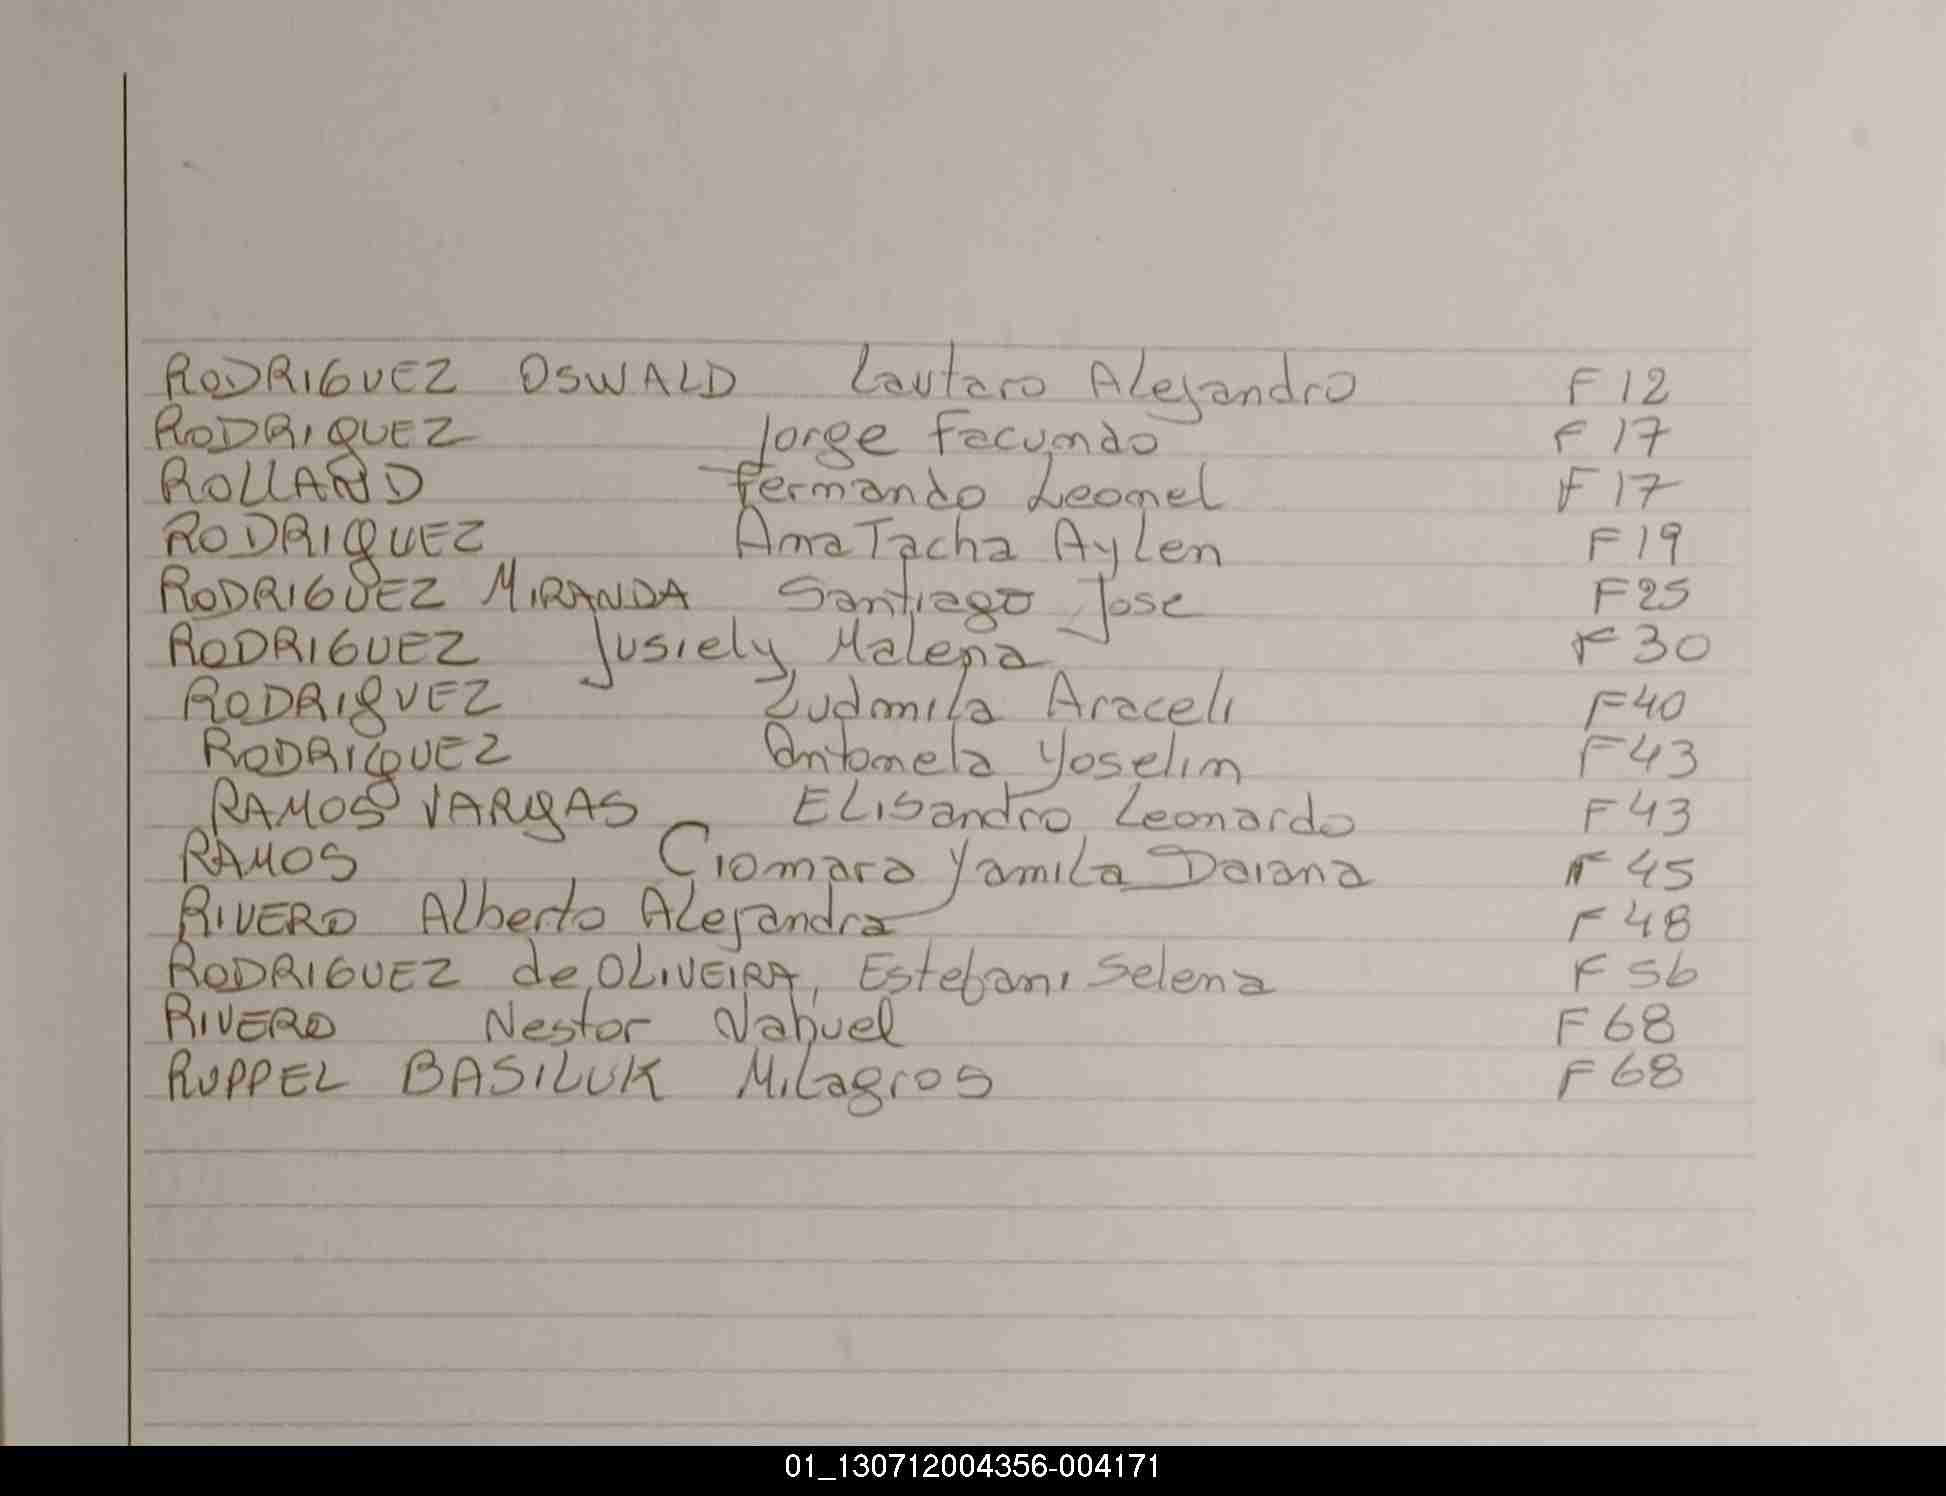 RODRIGUEZ OSWALD Lautaro Alejandro F 12
RODRIGUEZ Jorge Facundo F 17
ROLLAND Fernando Leonel F 17
RODRIGUEZ Ana Tacha Aylen F 19
RODRIGUEZ MIRANDA Santiago Jose F 25
RODRIGUEZ Jusiely Malena F 30
RODRIGUEZ Ludmila Araceli F 40
RODRIGUEZ Antonela Yoselin F 43
RAMOS VARGAS ELisandro Leonardo F 43
RAMOS Ciomara Yamila Daiana F 45
RIVERO Alberto Alejandra F 48
RODRIGUEZ de OLIVEIRA, Estefani Selena F 56
RIVERO Nestor Nahuel F 68
RUPPEL BASILUK Milagros F 68
01_130712004356-004171